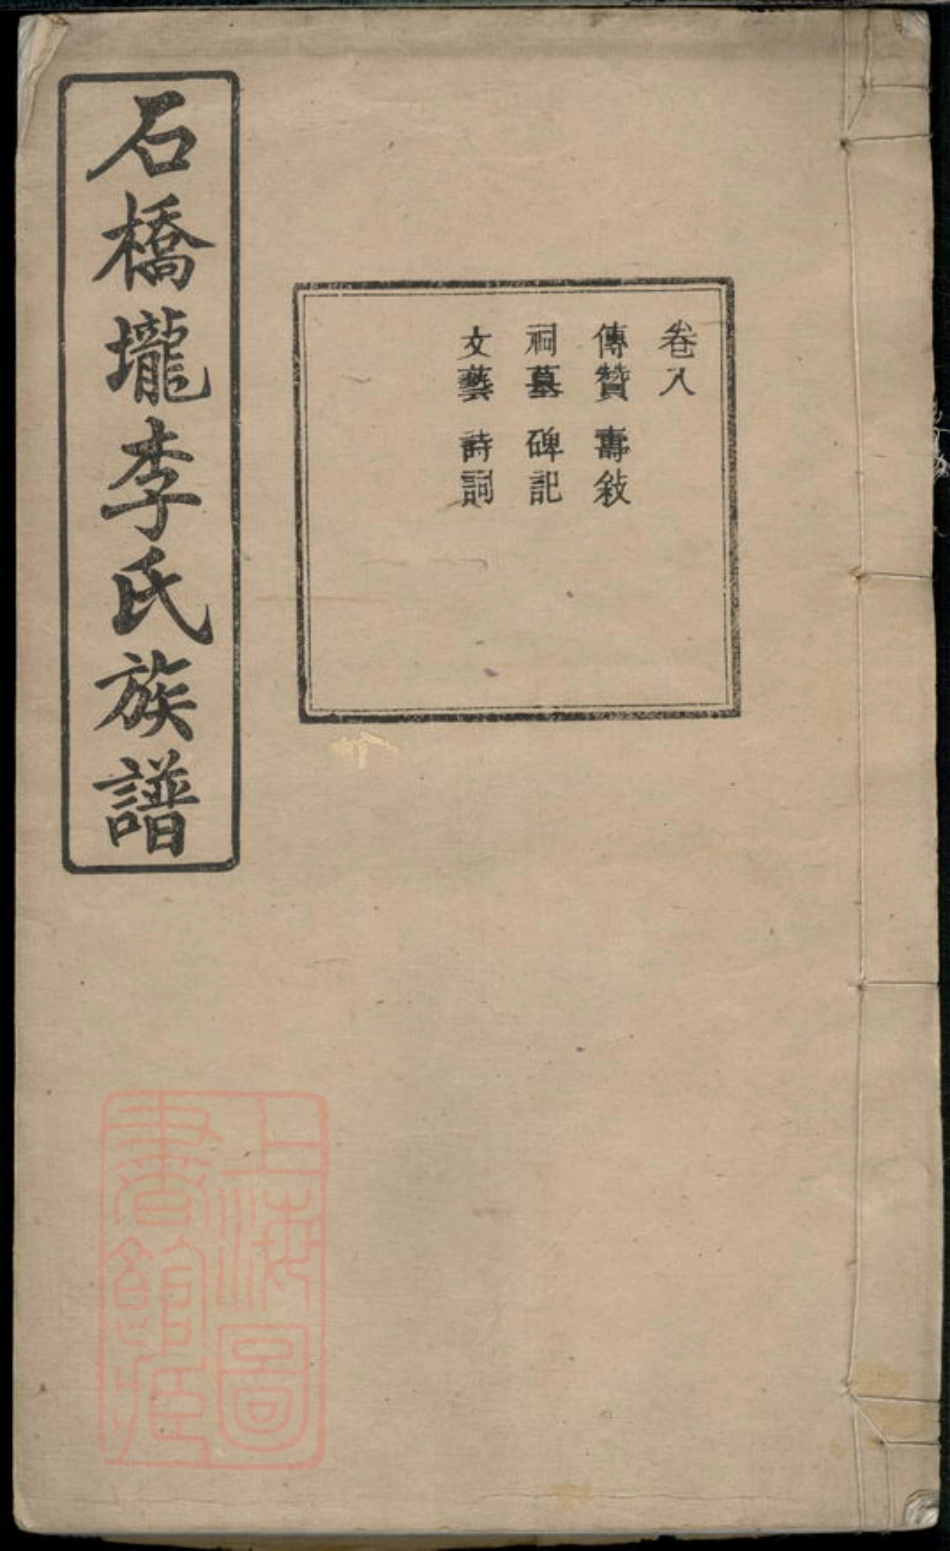 卷八
傳贊 壽敍
祠墓 碑記
文藝 詩詞
石橋壠李氏族譜
上海圖
書館藏